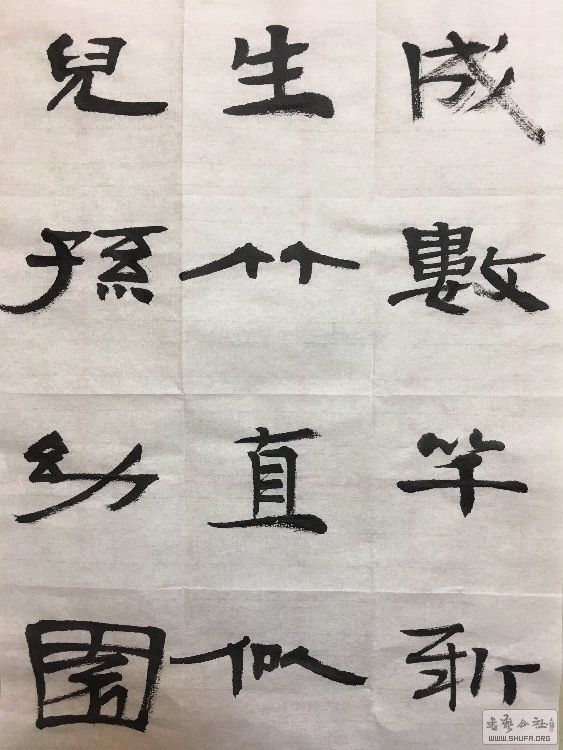 成數竿新
生竹直似
兒孫幼園
书艺公社
WWW.SHUFA.ORG